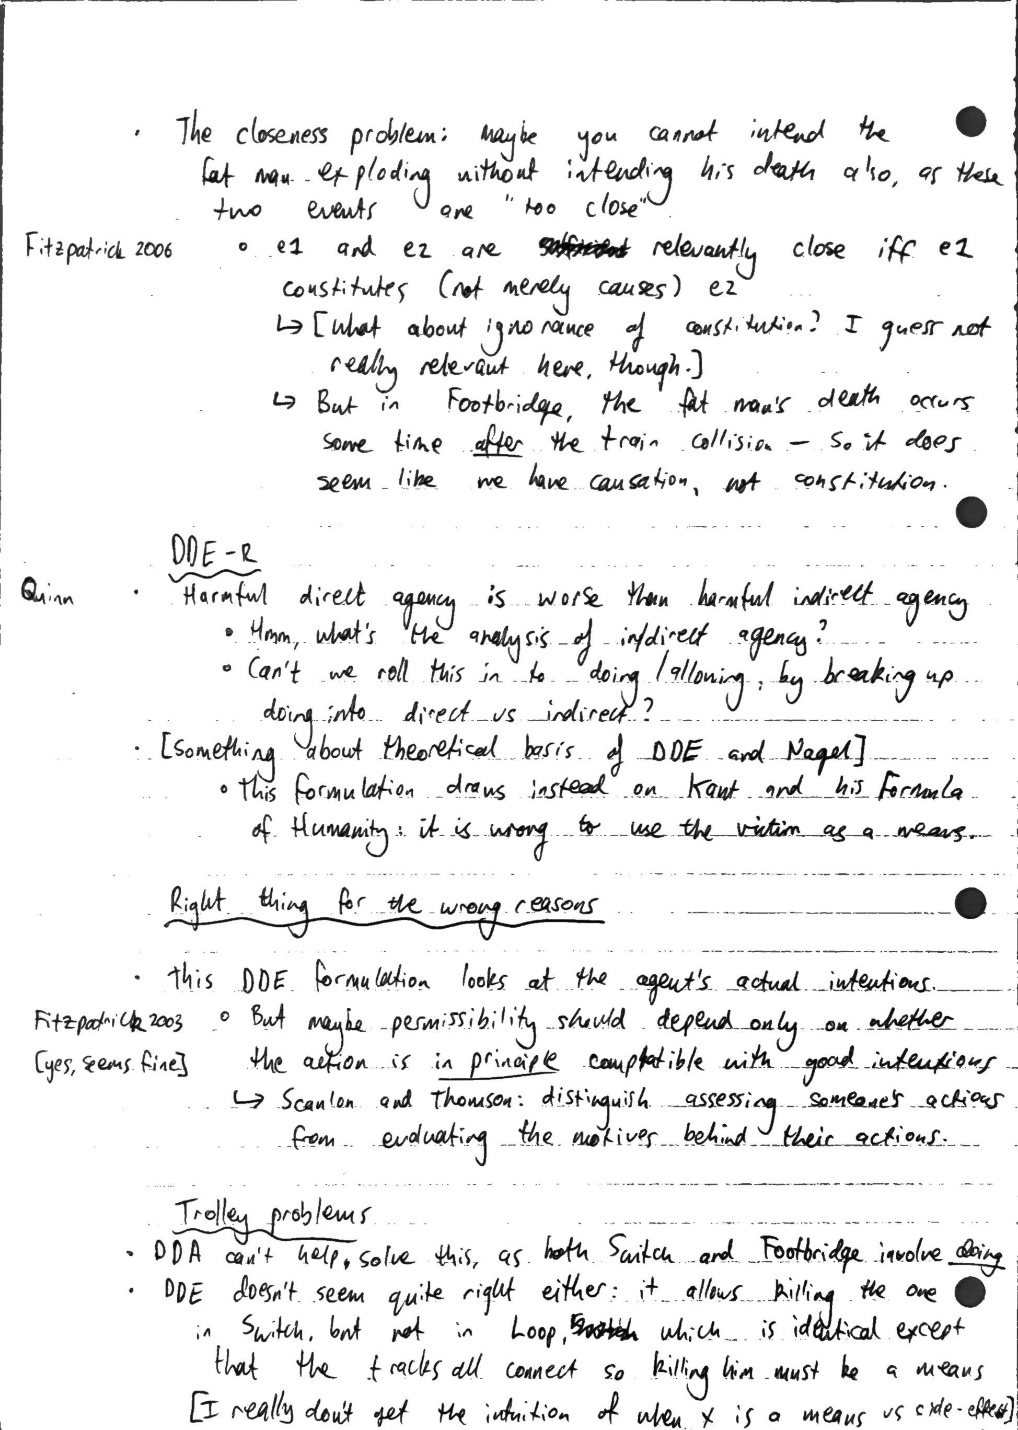 · The closeness problem: maybe you cannot intend the
fat man exploding without intending his death also, as these
two events are "too close"
Fitzpatrick 2006 ∘ e1 and e2 are relevantly close iff e1
constitutes (not merely causes) e2
↳ [What about ignorance of constitution? I guess not
really relevant here, though.]
↳ But in Footbridge, the fat man's death occurs
some time after the train collision – so it does
seem like we have causation, not constitution.
DDE-R
Quinn · Harmful direct agency is worse than harmful indirect agency
∘ Hmm, what's the analysis of in/direct agency?
∘ Can't we roll this in to doing/allowing, by breaking up
doing into direct vs indirect?
· [Something about theoretical basis of DDE and Nagel]
∘ This formulation draws instead on Kant and his Formula
of Humanity: it is wrong to use the victim as a means.
Right thing for the wrong reasons
· This DDE formulation looks at the agent's actual intentions.
Fitzpatrick 2003 ∘ But maybe permissibility should depend only on whether
[yes, seems fine] the action is in principle compatible with good intentions
↳ Scanlon and Thomson: distinguish assessing someone's actions
from evaluating the motives behind their actions.
Trolley problems
· DDA can't help solve this, as both Switch and Footbridge involve doing
· DDE doesn't seem quite right either: it allows killing the one
in Switch, but not in Loop, which is identical except
that the tracks all connect so killing him must be a means
[I really don't get the intuition of when X is a means vs side-effect]